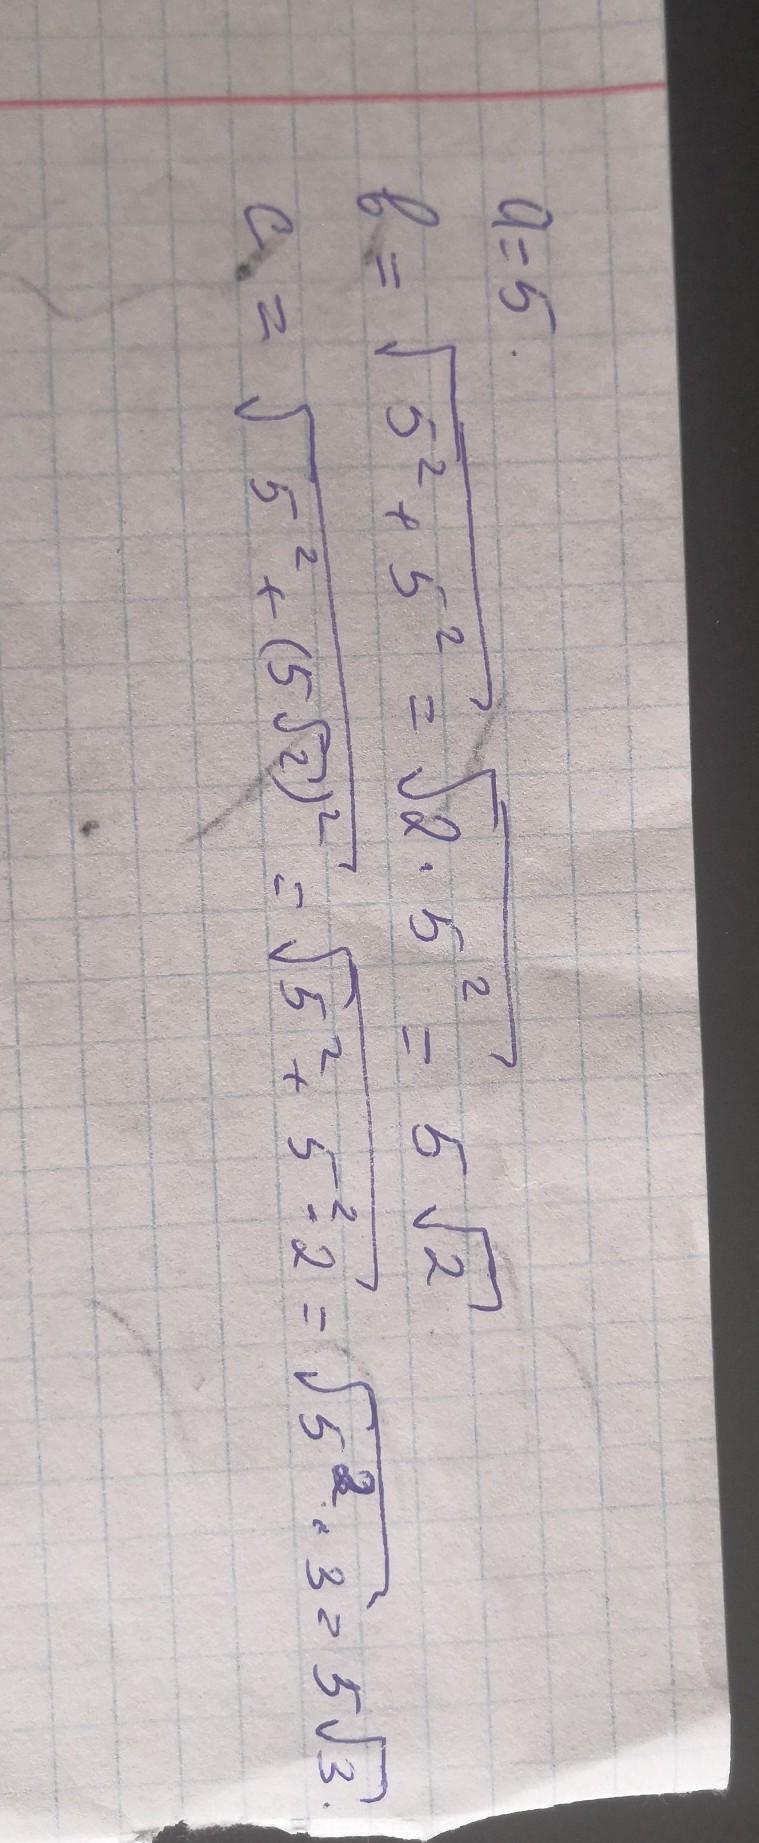 a = 5.
b = √(5² + 5²) = √(2 · 5²) = 5√2
c = √(5² + (5√2)²) = √(5² + 5² · 2) = √(5² · 3) = 5√3.